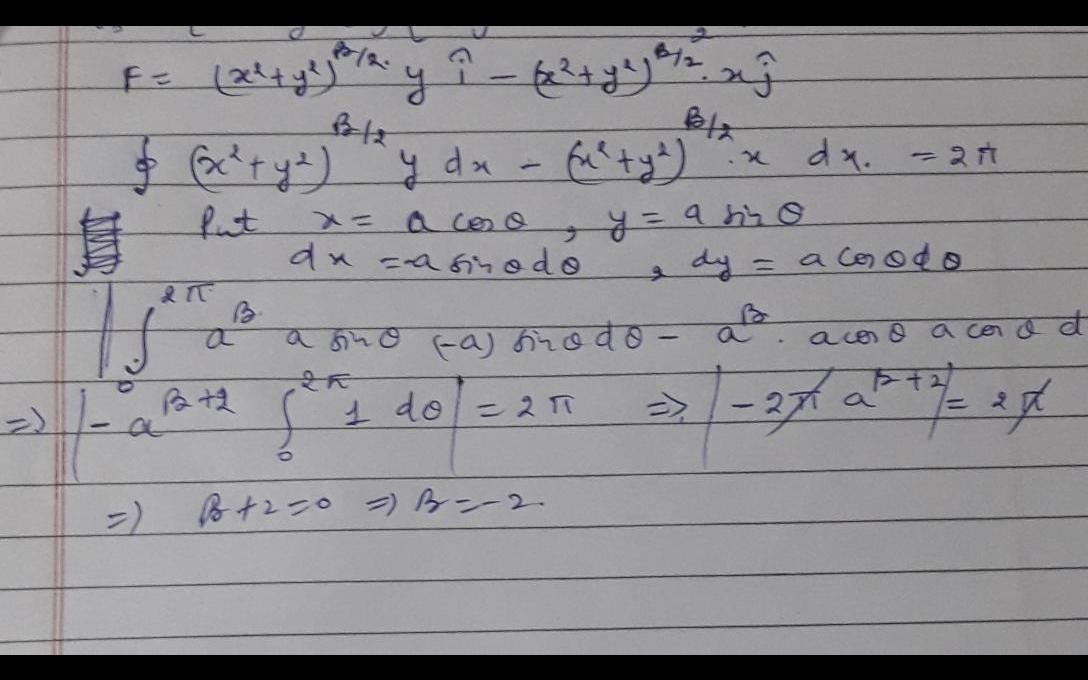 F = (x²+y²)^β/2. y î − (x²+y²)^β/2. x ĵ
∮ (x²+y²)^β/2 y dx − (x²+y²)^β/2 . x dx. = 2π
Put x = a cosθ , y = a sinθ
dx = -a sinθ dθ , dy = a cosθ dθ
| ∫₀^2π a^β. a sinθ (-a) sinθ dθ − a^β . a cosθ a cosθ d
=> | − a^β+2 ∫₀^2π 1 dθ | = 2π => | − 2π a^β+2 | = 2π
=) β+2=0 => β=−2.